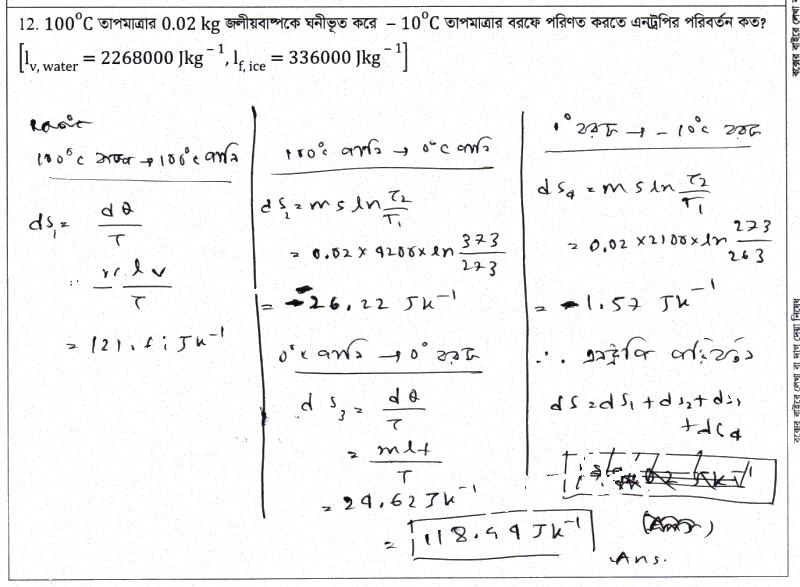 12. 100°C তাপমাত্রার 0.02 kg জলীয়বাষ্পকে ঘনীভূত করে – 10°C তাপমাত্রার বরফে পরিণত করতে এনট্রপির পরিবর্তন কত?
[l_v, water = 2268000 Jkg⁻¹, l_f, ice = 336000 Jkg⁻¹]
100°C বাষ্প → 100°C পানি
dS₁ = dQ/T
= m l_v/T
100°C পানি → 0°C পানি
dS₂ = m s ln T₂/T₁
= 0.02 × 4200 × ln 373/273
= -26.22 JK⁻¹
0°C পানি → 0° বরফ
dS₃ = dQ/T
= mlf/T
= 24.62 JK⁻¹
= 118.44 JK⁻¹
0° বরফ → -10°C বরফ
dS₄ = m s ln T₂/T₁
= 0.02 × 2100 × ln 273/263
= -1.57 JK⁻¹
∴ এনট্রপি পরিবর্তন
dS = dS₁ + dS₂ + dS₃
+ dS₄
Ans.